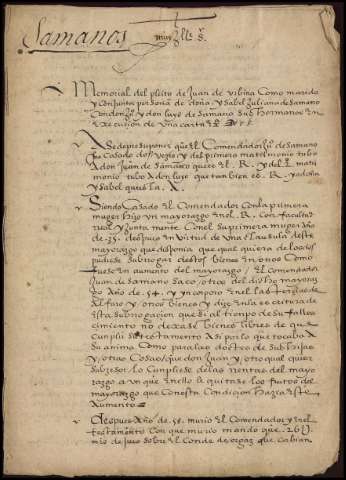 Samanos
muy Ills. s.
Memorial del pleito de Juan de Vibina Como marido
y Conjunta persona de doña ysabel Juliana de Samano
Con don Ju.º y don luys de Samano sus hermanos en
execucion de una carta
ASe de presuponer q̃ el Comendador Ju.º de Samano
fue Casado dos vezes y del primero matrimonio tubo
A don Juan de Samano que es el R. y del 2.º matri
monio tubo A don luys que tanbien es R. y a doña
ysabel que es la A.
Siendo Casado el Comendador Con la primera
muger hizo un mayorazgo en el R. Con facultad
real y Junta mente Con el su primera muger año
de 35. despues en virtud de una clausula deste
mayorazgo que disponia que qual quiera de los dos
pudiese subrogar destos bienes en otros Como
fuese en aumento del mayorazgo / el Comendador
Juan de Samano Saco otros del dicho mayoraz
Alfaro y otros bienes y dize en la escritura de
esta subrogacion que si al tiempo de su falles
cimiento no dexase bienes libres de que
Cumplir su testamento Asi por lo que tocaba A
su anima Como para lo de sus hijas
y otras Cosas / que don Juan y otro qual quier
subcesor lo Cumpliese de las rentas del mayo
razgo a un que en ello la quitase los frutos del
mayorazgo que Con esta Condicion hazia este
Aumento
Despues Año de 58. murio el Comendador y en el
testamento Con que murio mando que 26 U
mrs de juro sobre el Conde de orgaz que Cabian